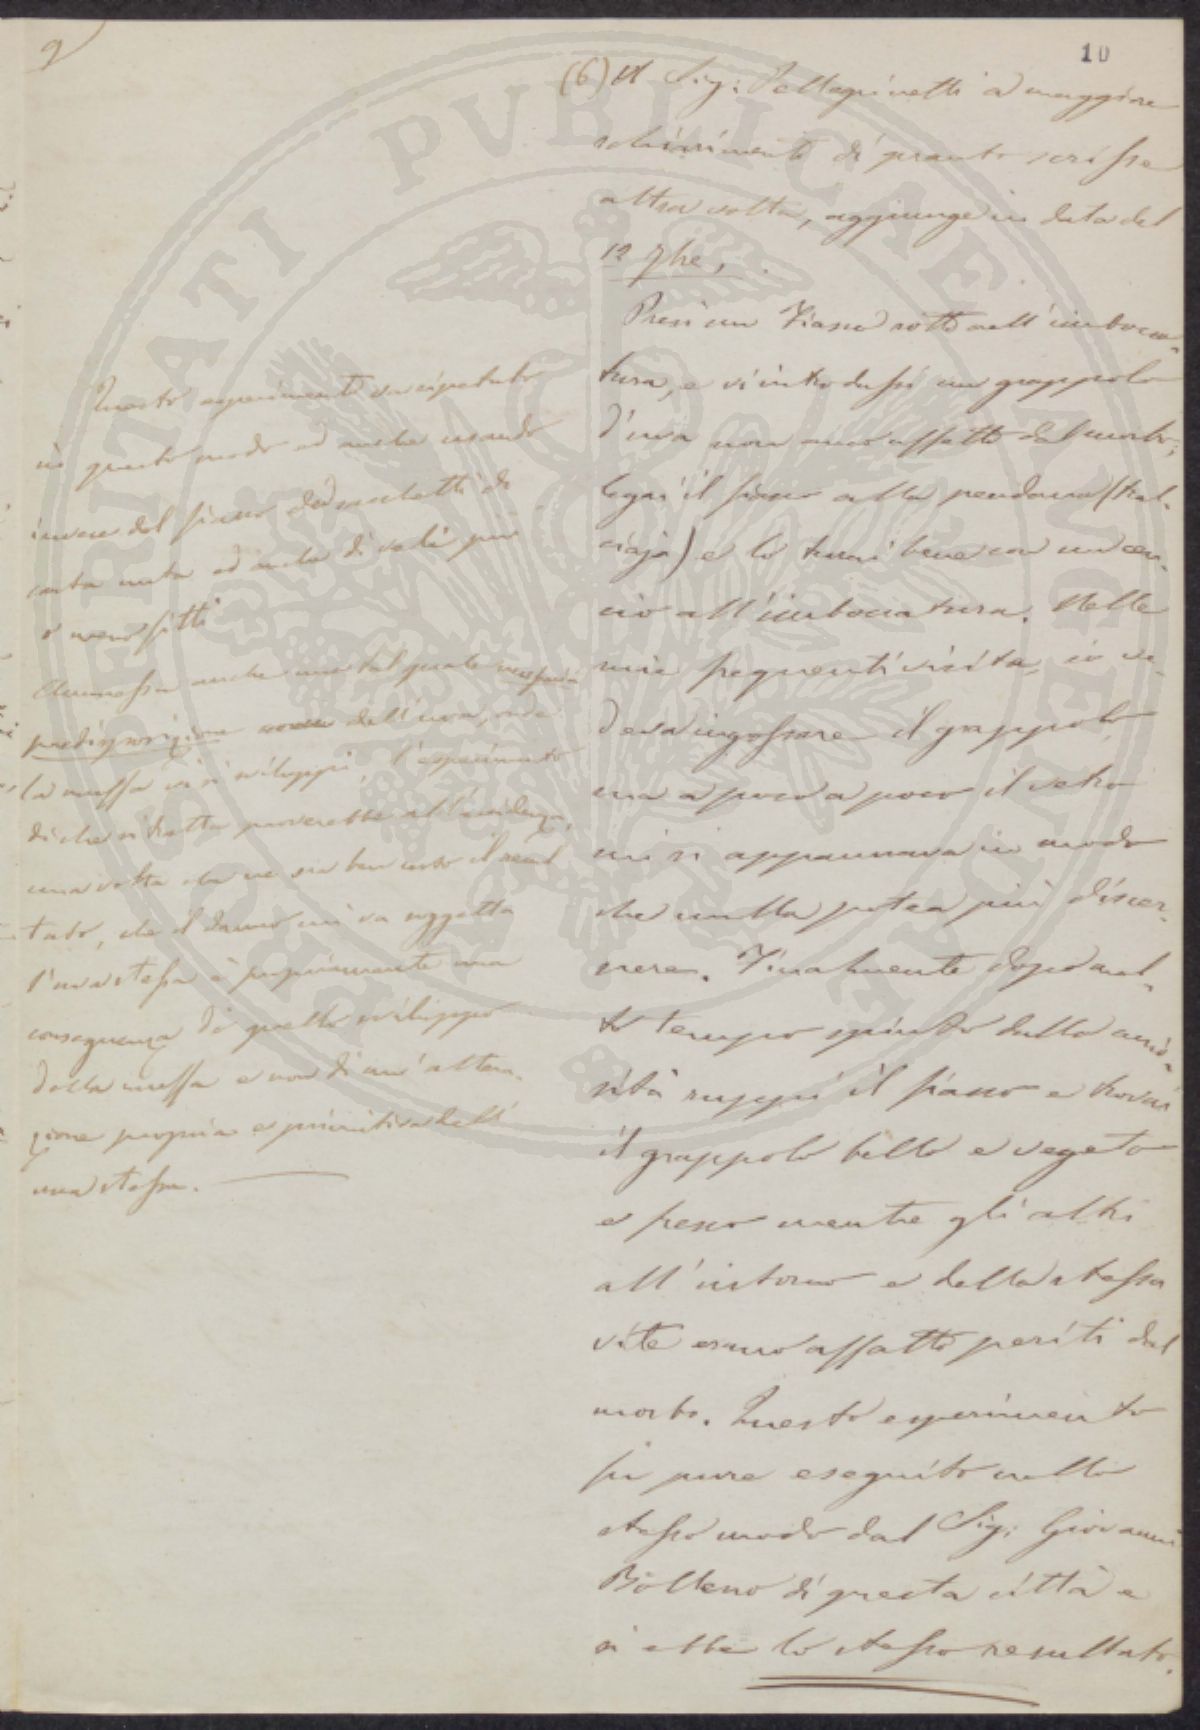 9
10
(6) Il Sig: Pellegrinetti a maggiore
schiarimento di quanto scrisse
altra volta, aggiunge in data del
12 7bre,
Presi un Fiasco rotto nell'imbocca-
tura, e vi introdussi un grappolo
d'uva non anco affetto dal morbo;
legai il fiasco alla pendana (tral-
ciaja) e lo turai bene con un cen-
cio all'imboccatura. Nelle
mie frequenti visite, io ve-
deva ingrossare il grappolo,
ma a poco a poco il vetro
mi si appannava in modo
che nulla potea più discer-
nere. Finalmente dopo mol-
to tempo spinto dalla curio-
sità ruppi il fiasco e trovai
il grappolo bello e vegeto
e fresco mentre gli altri
all'intorno e della stessa
vite erano affatto periti dal
morbo. Questo esperimento
fu pure eseguito nello
stesso modo dal Sig: Giovanni
Bolleno di questa città e
si ebbe lo stesso resultato.
Questo esperimento va ripetuto
in questo modo ed anche usando
invece del fiasco dei sacchetti di
carta unta ed anche di veli più
o meno fitti
Ammessa anche una tal quale
predisposizione dell'uva, onde
la muffa vi si sviluppi, l'esperimento
di che si tratta proverebbe all'evidenza,
una volta che ne sia ben certo il resul
tato, che il danno cui va soggetta
l'uva stessa è propriamente una
conseguenza di quello sviluppo
della muffa e non di un'altera-
zione propria e primitiva dell'
uva stessa.
PVBLICAE